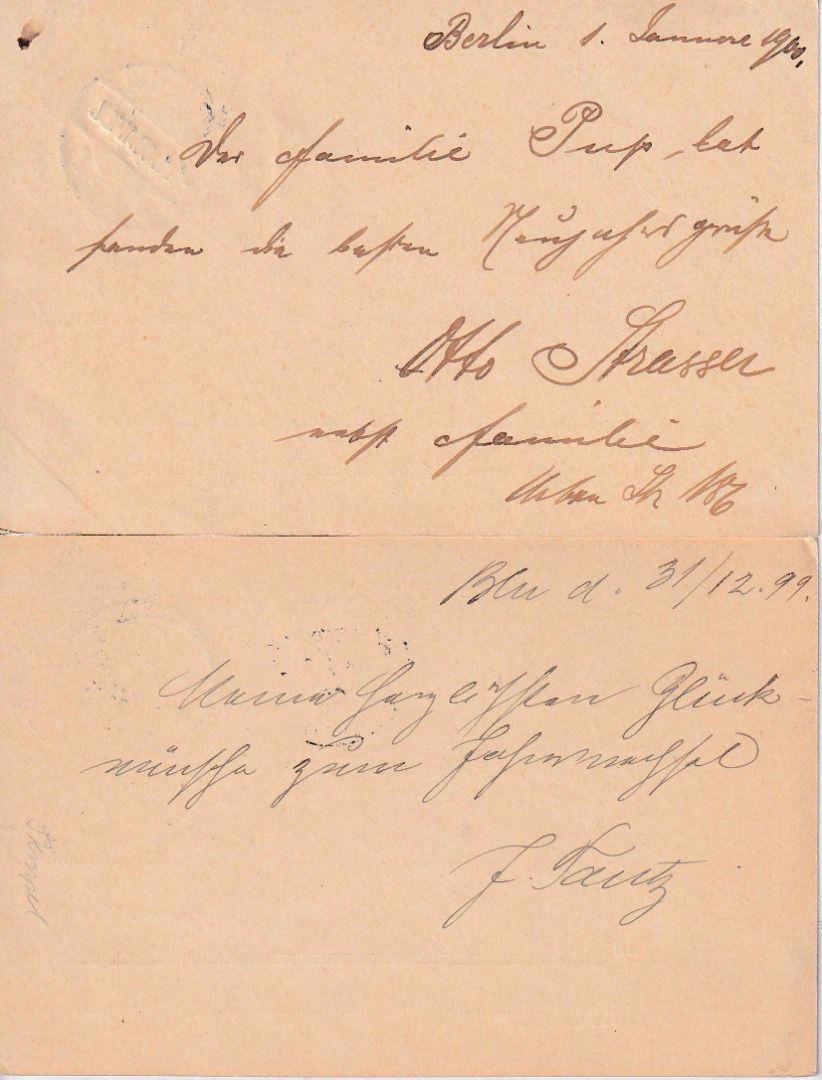 Berlin 1. Januar 1900,
Der Familie
senden die besten Neujahrsgrüße
Otto Strasser
nebst Familie
Urban Str 186
Bln d. 31/12.99.
Meine herzlichsten Glück-
wünsche zum Jahreswechsel
F. Tantz
Stempel